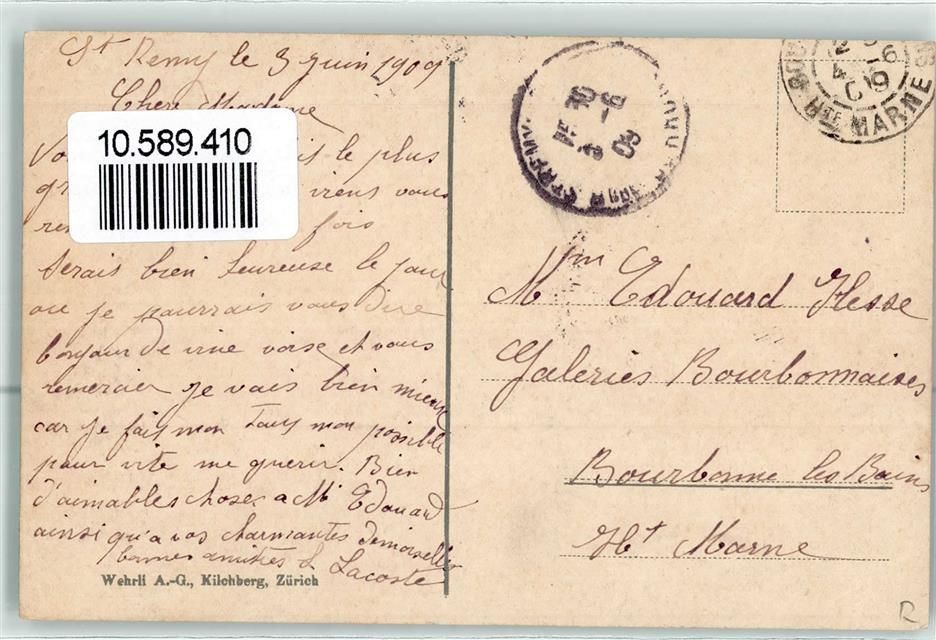 St Remy le 3 juin 1909
Chère Madame
10.589.410
le plus
viens vous
fois
serais bien heureuse le jour
ou je pourrais vous dire
bonjour de vive voise et vous
remercier je vais bien mieux
car je fait mon tous mon possible
pour vite me guerir. Bien
d'aimables choses a Mr Edouard
ainsi qu'a vos charmantes demoiselles
bonnes amitiés L Lacoste
Wehrli A.-G., Kilchberg, Zürich
Hte MARNE
Mm Edouard Hesse
Galeries Bourbonnaises
Bourbonne les Bains
Ht Marne